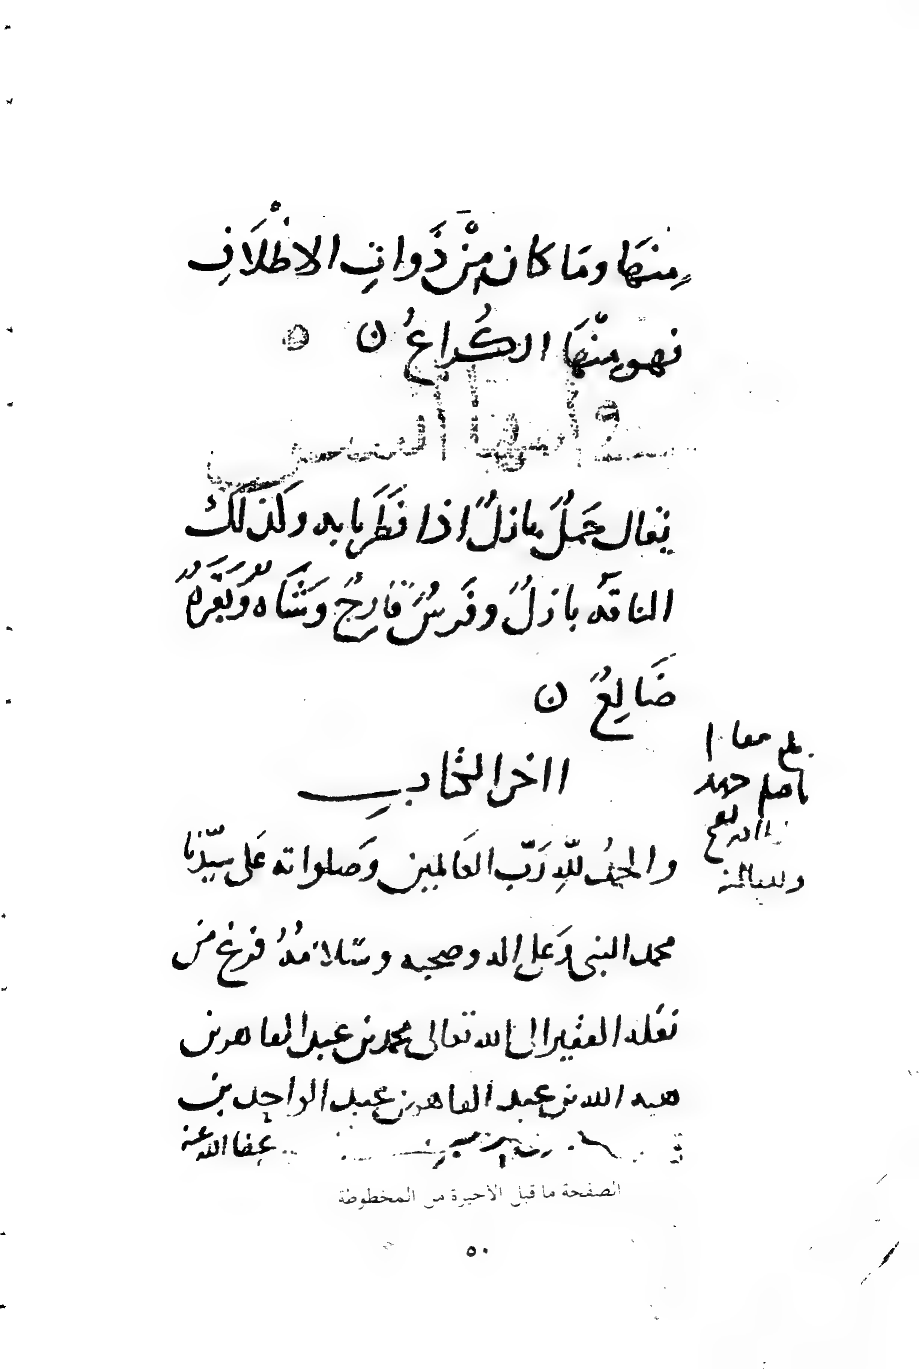 منها وما كان من ذوات الاظلاف
فهو منها الكراع ن
يقال جمل بازل اذا فطر نابه وكذلك
الناقة بازل وفرس قارح وشاة وبقرة
ضالع ن
اخر الكتاب
والحمد لله رب العالمين وصلواته على سيدنا
محمد النبي وعلى اله وصحبه وسلامه فرغ من
نقله الفقير الى الله تعالى محمد بن عبد القاهر بن
هبه الله بن عبد القاهر بن عبد الواحد بن
عفا الله عنه
الصفحة ما قبل الأخيرة من المخطوطة
٥٠